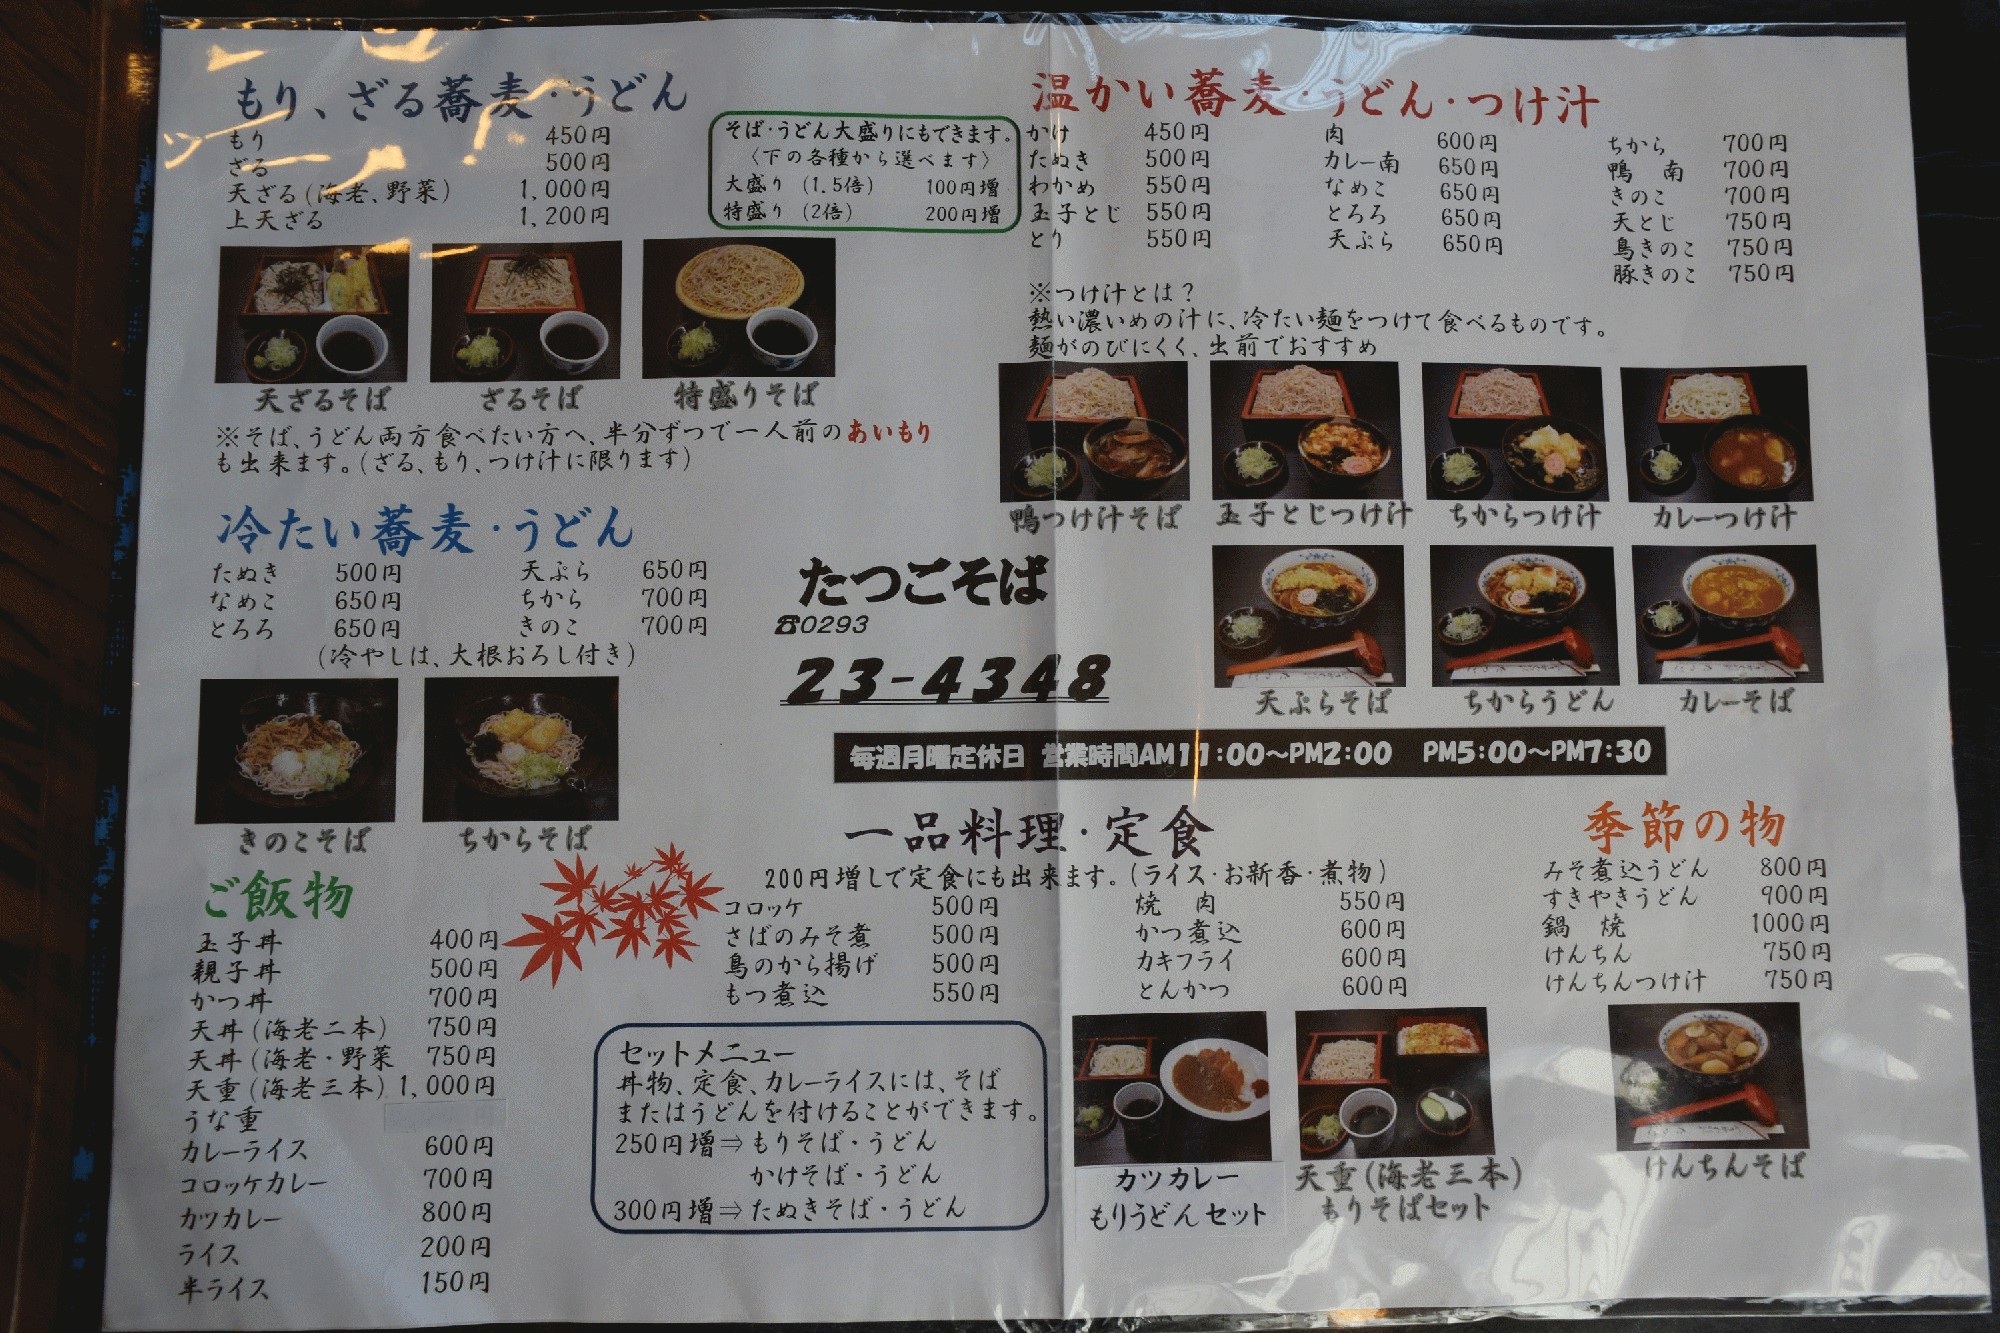 もり、ざる蕎麦・うどん
もり 450円
ざる 500円
天ざる(海老、野菜) 1,000円
上天ざる 1,200円
そば・うどん大盛りにもできます。
〈下の各種から選べます〉
大盛り (1.5倍) 100円増
特盛り (2倍) 200円増
天ざるそば ざるそば 特盛りそば
※そば、うどん両方食べたい方へ、半分ずつで一人前のあいもり
も出来ます。(ざる、もり、つけ汁に限ります)
冷たい蕎麦・うどん
たぬき 500円 天ぷら 650円
なめこ 650円 ちから 700円
とろろ 650円 きのこ 700円
(冷やしは、大根おろし付き)
きのこそば ちからそば
ご飯物
玉子丼 400円
親子丼 500円
かつ丼 700円
天丼(海老二本) 750円
天丼(海老・野菜 750円
天重(海老三本) 1,000円
うな重
カレーライス 600円
コロッケカレー 700円
カツカレー 800円
ライス 200円
半ライス 150円
温かい蕎麦・うどん・つけ汁
かけ 450円 肉 600円 ちから 700円
たぬき 500円 カレー南 650円 鴨 南 700円
わかめ 550円 なめこ 650円 きのこ 700円
玉子とじ 550円 とろろ 650円 天とじ 750円
とり 550円 天ぷら 650円 鳥きのこ 750円
豚きのこ 750円
※つけ汁とは?
熱い濃いめの汁に、冷たい麺をつけて食べるものです。
麺がのびにくく、出前でおすすめ
鴨つけ汁そば 玉子とじつけ汁 ちからつけ汁 カレーつけ汁
天ぷらそば ちからうどん カレーそば
たつこそば
☎0293
23-4348
毎週月曜定休日 営業時間AM11:00～PM2:00 PM5:00～PM7:30
一品料理・定食
200円増しで定食にも出来ます。(ライス・お新香・煮物)
コロッケ 500円 焼 肉 550円
さばのみそ煮 500円 かつ煮込 600円
鳥のから揚げ 500円 カキフライ 600円
もつ煮込 550円 とんかつ 600円
セットメニュー
丼物、定食、カレーライスには、そば
またはうどんを付けることができます。
250円増⇒もりそば・うどん
かけそば・うどん
300円増⇒たぬきそば・うどん
カツカレー
もりうどんセット
天重(海老三本)
もりそばセット
季節の物
みそ煮込うどん 800円
すきやきうどん 900円
鍋 焼 1000円
けんちん 750円
けんちんつけ汁 750円
けんちんそば